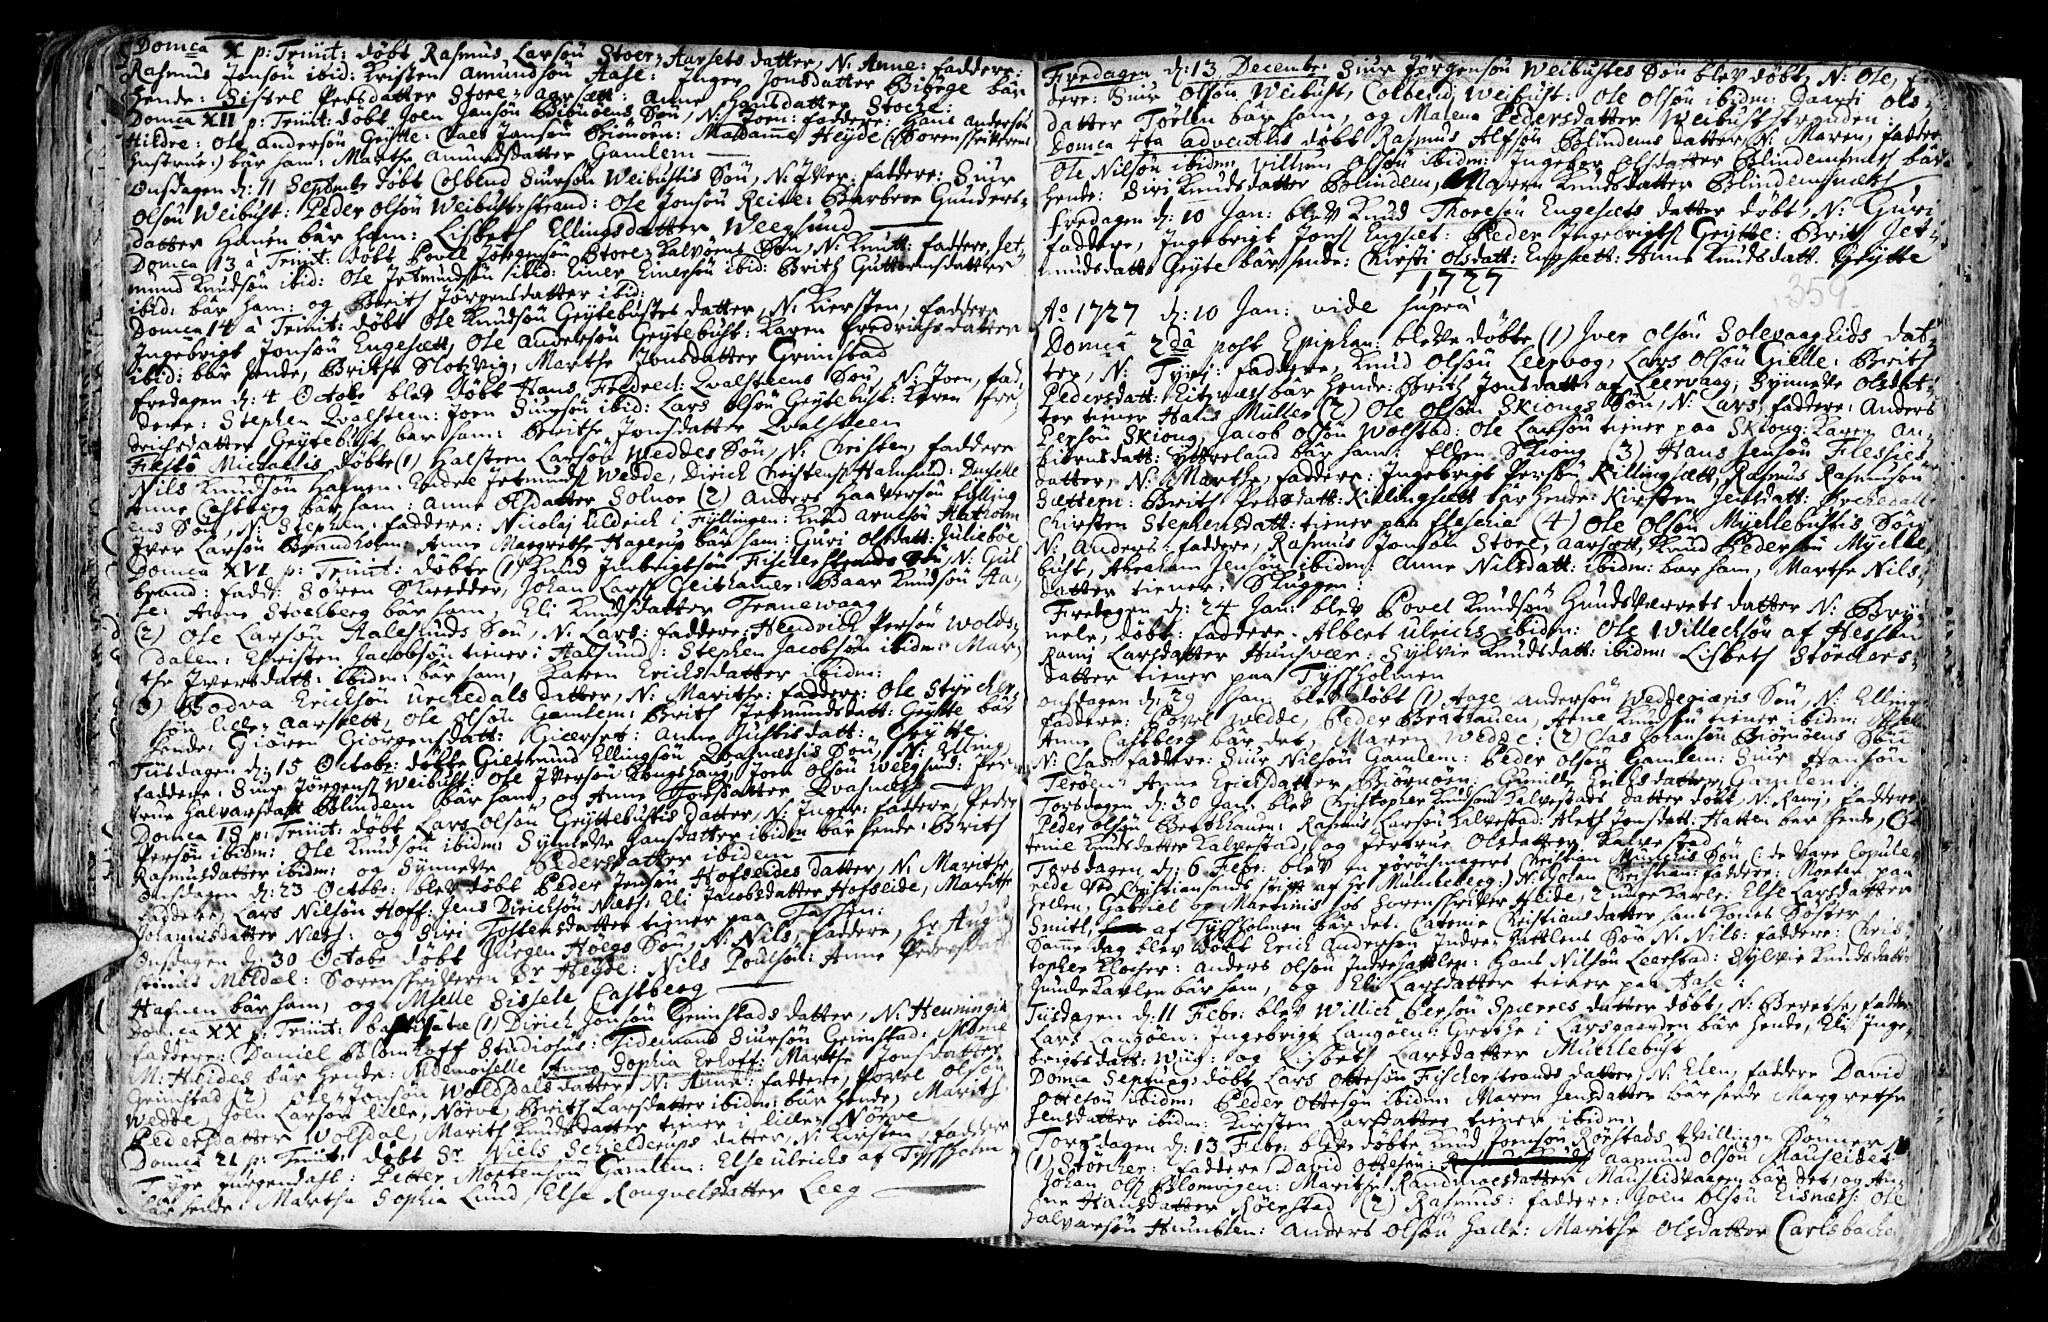 Domca X p: Trinit: döbt Rasmus Larsön Stoer-Aarsets datter, N: Anne: faddere:
Rasmus Jonsön ibid: Kristen Amundsön Aase: Inger Jonsdatter Bigrge bär
hende: Sissel Persdatter Store-aarsæt: Anne Hansdatter Stocke:
Domca XII p: Trinit: döbt Joen Jansön Biönöens Sön, N: Joen: faddere: Hans Andersön
Hildre: Ole Andersön Grytte: Claes Jonsön Biönöen: Madame Heyde (: Sorenskriverens
hustrue:) bär ham: Marthe Amundsdatter Gamlem
Onsdagen d: 11 Septembr döbt Colbend Siursön Weibustes Sön, N: Iver: faddere: Siur
Olsön Weibust: Peder Olsön Weibuststrand: Ole Jonsön Reite: Barbroe Gunders-
datter Hanen bär ham: Lisbeth Ellingsdatter Weegsund
Domca 13 à Trinit: döbt Povel Jörgensön Store-Kalvöens Sön, N: Knutt: faddere, Jet-
mund Knudsön ibid: Ole Jetmundsön ibid: Einer Einersön ibid: Brith Guttormsdatter
ibid: bär ham: og Brith Jörgensdatter ibid:
Domca 14 à Trinit: döbt Ole Knudsön Grytebustes datter, N: Kiersten, faddere
Ingebrigt Jonsön Engesætt, Ole Andersön Grytebust: Karen Fredrichsdatter
ibid: bär hende, Brithe Slotvig, Marthe Jonsdatter Grimstad
fredagen d: 4 Octobr blev döbt Hans Fredrect: Qvalsteens Sön, N: Joen, fad-
dere: Stephen Qvalsteen: Joen Siursön ibid: Lars Olsön Grytebust: Karen fre-
drichsdatter Grytebust bar ham: Brithe Jonsdatter Qvalsteen
Festo Michaelis döbte (1) Halsteen Larsön Weddes Sön, N: Christen, faddere
Nils Knudsön Hafnen: Endre Jetmunds Wedde, Dirich Christens Halmsund: Mselle
Anne Castberg bär ham: Anne Olsdatter Solnor (2) Anders Haaversön fylling
ens Sön, N: Stephen: faddere: Nicolaj Lildrich i Fyllingen: Knud Arnesön Alxholm
Iver Larsön Brandholm: Anne Margrethe Hagerup bär ham: Guri Olsdatt: Julieböe
Domca XVI p: Trinit: döbte (1) Knud Inbrigtsön Fischerstrands Sön, N: Gul
brand: fadd: Sören Skredder, Johan Lars Geithamer: Baar Knudsön Aa-
se: Anne Stoelberg bär ham, Eli Knudsdatter Tranewaag
(2) Ole Larsön Aalesunds Sön, N: Lars: faddere: Hendrich Persön Wolds-
dalen: Christen Jacobsön tiener i Aalsund: Stephen Jacobsön ibidm: Mar-
the Iversdatt: ibidm: bär ham, Karen Erichsdatter ibidm:
3) Bodva Ericksön Urckedals datter, N: Marithe: faddere: Ole Styrcker-
sön lille-Aarsætt, Ole Olsön Gamlem: Brith Jetmundsdatt: Grytte bär
hende: Giören Giörgensdatt: Giærset: Anne Justisdatt: Grytte
Tiisdagen d: 15 Octobr: döbte Gietmund Ellingsön Qvasnessis Sön, N: Elling,
faddere, Siur Jörgens Weibust: Ole Iversön Kongshaug, Joen Olsön Weegsund: Per-
true Halvarsdatt Blindem bär ham, og Anne Joensdatter Qvasness
Domca 18 p: Trinit: döbt Lars Olsön Gryttebustis datter, N: Inger: faddere, Peder
Persön ibidm: Ole Knudsön ibidm: Synneve Jansdatter ibidm bär hende: Brith
Rasmusdatter ibidm: og Synneve Pedersdatter ibidem
Onsdagen d: 23 Octobr: blev döbt Peder Jensön Hofseides datter, N: Marithe
faddere, Lars Nilsön Hoff: Jens Dirichsön Næss: Eli Jacobsdatter Hofseide, Marithe
Johannisdatter Næss: og Siri Tostensdatter tiener paa Tassen:
Onsdagen d: 30 Octobr döbt Jurgen Hoegs Sön, N: Nils, faddere, Hr Augu
stinus Meldal: Sorenskriveren Sr Heyde: Nils Poulsön: Anne Pedersdatt
Hafnen bär ham, og Mselle Sissele Castberg
Domca XX p: Trinit: baptisatæ (1) Dirich Jonsön Grimstads datter, N: Henningia
faddere: Daniel Blomhoff Studiosus: Tidemand Siursön Grimstad: Mdme
M: Heides bär hende: Mdemoiselle Anna Sophia Erhoff: Marthe Jonsdatter
Grimstad (2) Ole Jonsön Woldsdals datter, N: Anne: faddere, Povel Olsön
Wedde, Joen Larsön lille, Nörve, Brith Larsdatter ibidm: bär hende, Marith
Pedersdatter Wolsdal, Marith Knudsdatter tiener i lille-Nörve
Domca 21 p: Trinit: döbt Sr Niels Schielderups datter, N: Kirsten: faddere
Tyge Jurgendahl: Petter Mortensön Gamlem: Else Ulrichs af Tyssholm
bär hende: Marthe Sophia Lund, Else Rougvelsdatter Leeg
Fredagen d: 13 Decembr: Siur Jörgensön Weibustes Sön blev döbt, N: Ole, fad-
dere: Siur Olsön Weibust, Colbend Weibust: Ole Olsön ibidm: Jansi Ols-
datter Töelen bär ham, og Malena Pedersdatter Weibuststranden:
Domca 4ta Adventus döbt Rasmus Alfsön Blindems datter, N: Maren, faddere
Ole Nilsön ibidm: Villum Olsön ibidm: Ingebor Olsdatter Blindemsnæs bär
hende: Siri Knudsdatter Blindem, Maren Knudsdatter Blindemsnæss
fredagen d: 10 Jan: blev Knud Thoresön Engesæts datter döbt, N: Guri
faddere, Ingebrigt Jons Engsæt: Peder Ingebrigts Grytte: Brith Jet-
mundsdatt: Gryte bär hende: Chirsti Olsdatt: Engsætt: Anne Knudsdatt. Grytte
1727
359
Ao 1727 d: 10 Jan: vide supra
Domca 2da post Epiphan: bleve döbte (1) Iver Olsön Solevaagseids dat-
ter, N: Tyri: faddere, Knud Olsön Leervog, Lars Olsön Gielle: Brith
Pedersdatt: Eitrnes bär hende: Brith Jonsdatt: af Leervaag, Synneve Olsdat-
ter tiener Hans Müller (2) Ole Olsön Skiongs Sön, N: Lars, faddere: Anders
Persön Skiong, Jacob Olsön Wolstad: Ole Larsön tiener paa Skiong: Karen An-
biörnsdatt: Ytterland bär ham: Ellen Skiong (3) Hans Jensön Flessies
datter, N: Marthe, faddere: Ingebrigt Persön Killingsætt, Rasmus Rasmusön
Sættem: Brith Persdatt: Killingsætt bär hende: Kirsten Jensdatt: Breckevall
Chirsten Stephensdatt: tiener paa Fleschie (4) Ole Olsön Myellebustis Sön
N: Anders: faddere, Rasmus Jonsön Store, aarsett, Knud Pedersön Myelle-
bust, Abraham Jensön ibidm: Anne Nilsdatt: ibidm: bär ham, Marthe Nils-
datter tiener i Skuggen:
Fredagen d: 24 Jan: blev Povel Knudsön Hundsværrets datter N: Bry-
nele, döbt: faddere: Albert Ulrichs ibidm: Ole Willecksön af Hessen
Rami Larsdatter Hunsvær: Sylvie Knudsdatt: ibidm: Lisbeth Störckers-
datter tiener paa Tyssholmen
onsdagen d: 29 Jan: blev döbt (1) Aage Andersön Weddegiæris Sön, N: Elling
faddere: Povel Wedde, Peder Bratthauen, Arne Knudsön tiener ibidm: Mselle
Anne Castberg bär det, Maren Wedde: (2) Clas Johansön Biörnöens Sön
N: Clas: faddere: Siur Nilsön Gamlem: Peder Olsön Gamlem: Siur Hansön
Teröen: Anne Erichsdatter Biörnöen: Gunilde Erichsdatter Gamlem
Torsdagen d: 30 Jan: blev Christopher Knudsön Kalvestads datter döbt, N: Rami, faddere:
Peder Olsön Bratthauen: Rasmus Larsön Kalvestad: Aleth Jonsdatt: Hatten bär hende, Ca-
trine Knudsdatter Kalvestad, og Jertrue Olsdatter Kalvestad
Torsdagen d: 6 Febr: blev en poröchmagers Christian Minthis Sön, (: de vare Copule-
rede ved Christiansands stift af Hr Mühlebeberg:) N: Johan Christian: faddere: Morten paa
Hellen, Gabriel og Martinis hos Sorenskriver Heide, 2 unge Karle: Else Larsdatter
Smitt, af Tyssholmen bär det. Catrine Christiansdatter hans Kones Söster
Samme dag blev döbt Erich Andersen Indre-Hatlens Sön N: Nils: faddere: Chris-
topher Klocher: Anders Olsön Indrehatlen: Hans Nilsön Leerstad: Sylvie Knudsdatt:
Gundekarlen bär ham, og Eli Larsdatter tiener paa Aase:
Tiisdagen d: 11 Febr: blev Willich Persön Spærres datter döbt, N: Berethe, faddere
Lars Langöen: Ingebrigt Langöen: Grethe i Larsgaarden bär hende, Eli Inge-
brigtsdatt: Wiig: og Lisbeth Larsdatter Muchlebust
Domca Septuag: döbt Lars Ottesön Fischerstrands datter, N: Elen, faddere David
Ottesön ibidm: Peder Ottesön ibidm: Maren Jensdatter bär hende Margrethe
Jensdatter ibidm: Kirsten Larsdatter tiener ibidm:
Torsdagen d: 13 Febr: blev döbte Knud Joensön Rörstads tvillinge Sönner
(1) Störcher: faddere David Ottesön: Aamund Olsön Mauseidet
Johan Ols Blomvigen: Marithe Randinaesdatter Mauseidvaagen bär det, og An-
ne Hansdatter Rörstad (2) Rasmus: faddere: Joen Olsön Eisnæss: Ole
Halvarsön Humblen: Anders Olsön Halle: Marithe Olsdatter Carlsbacke